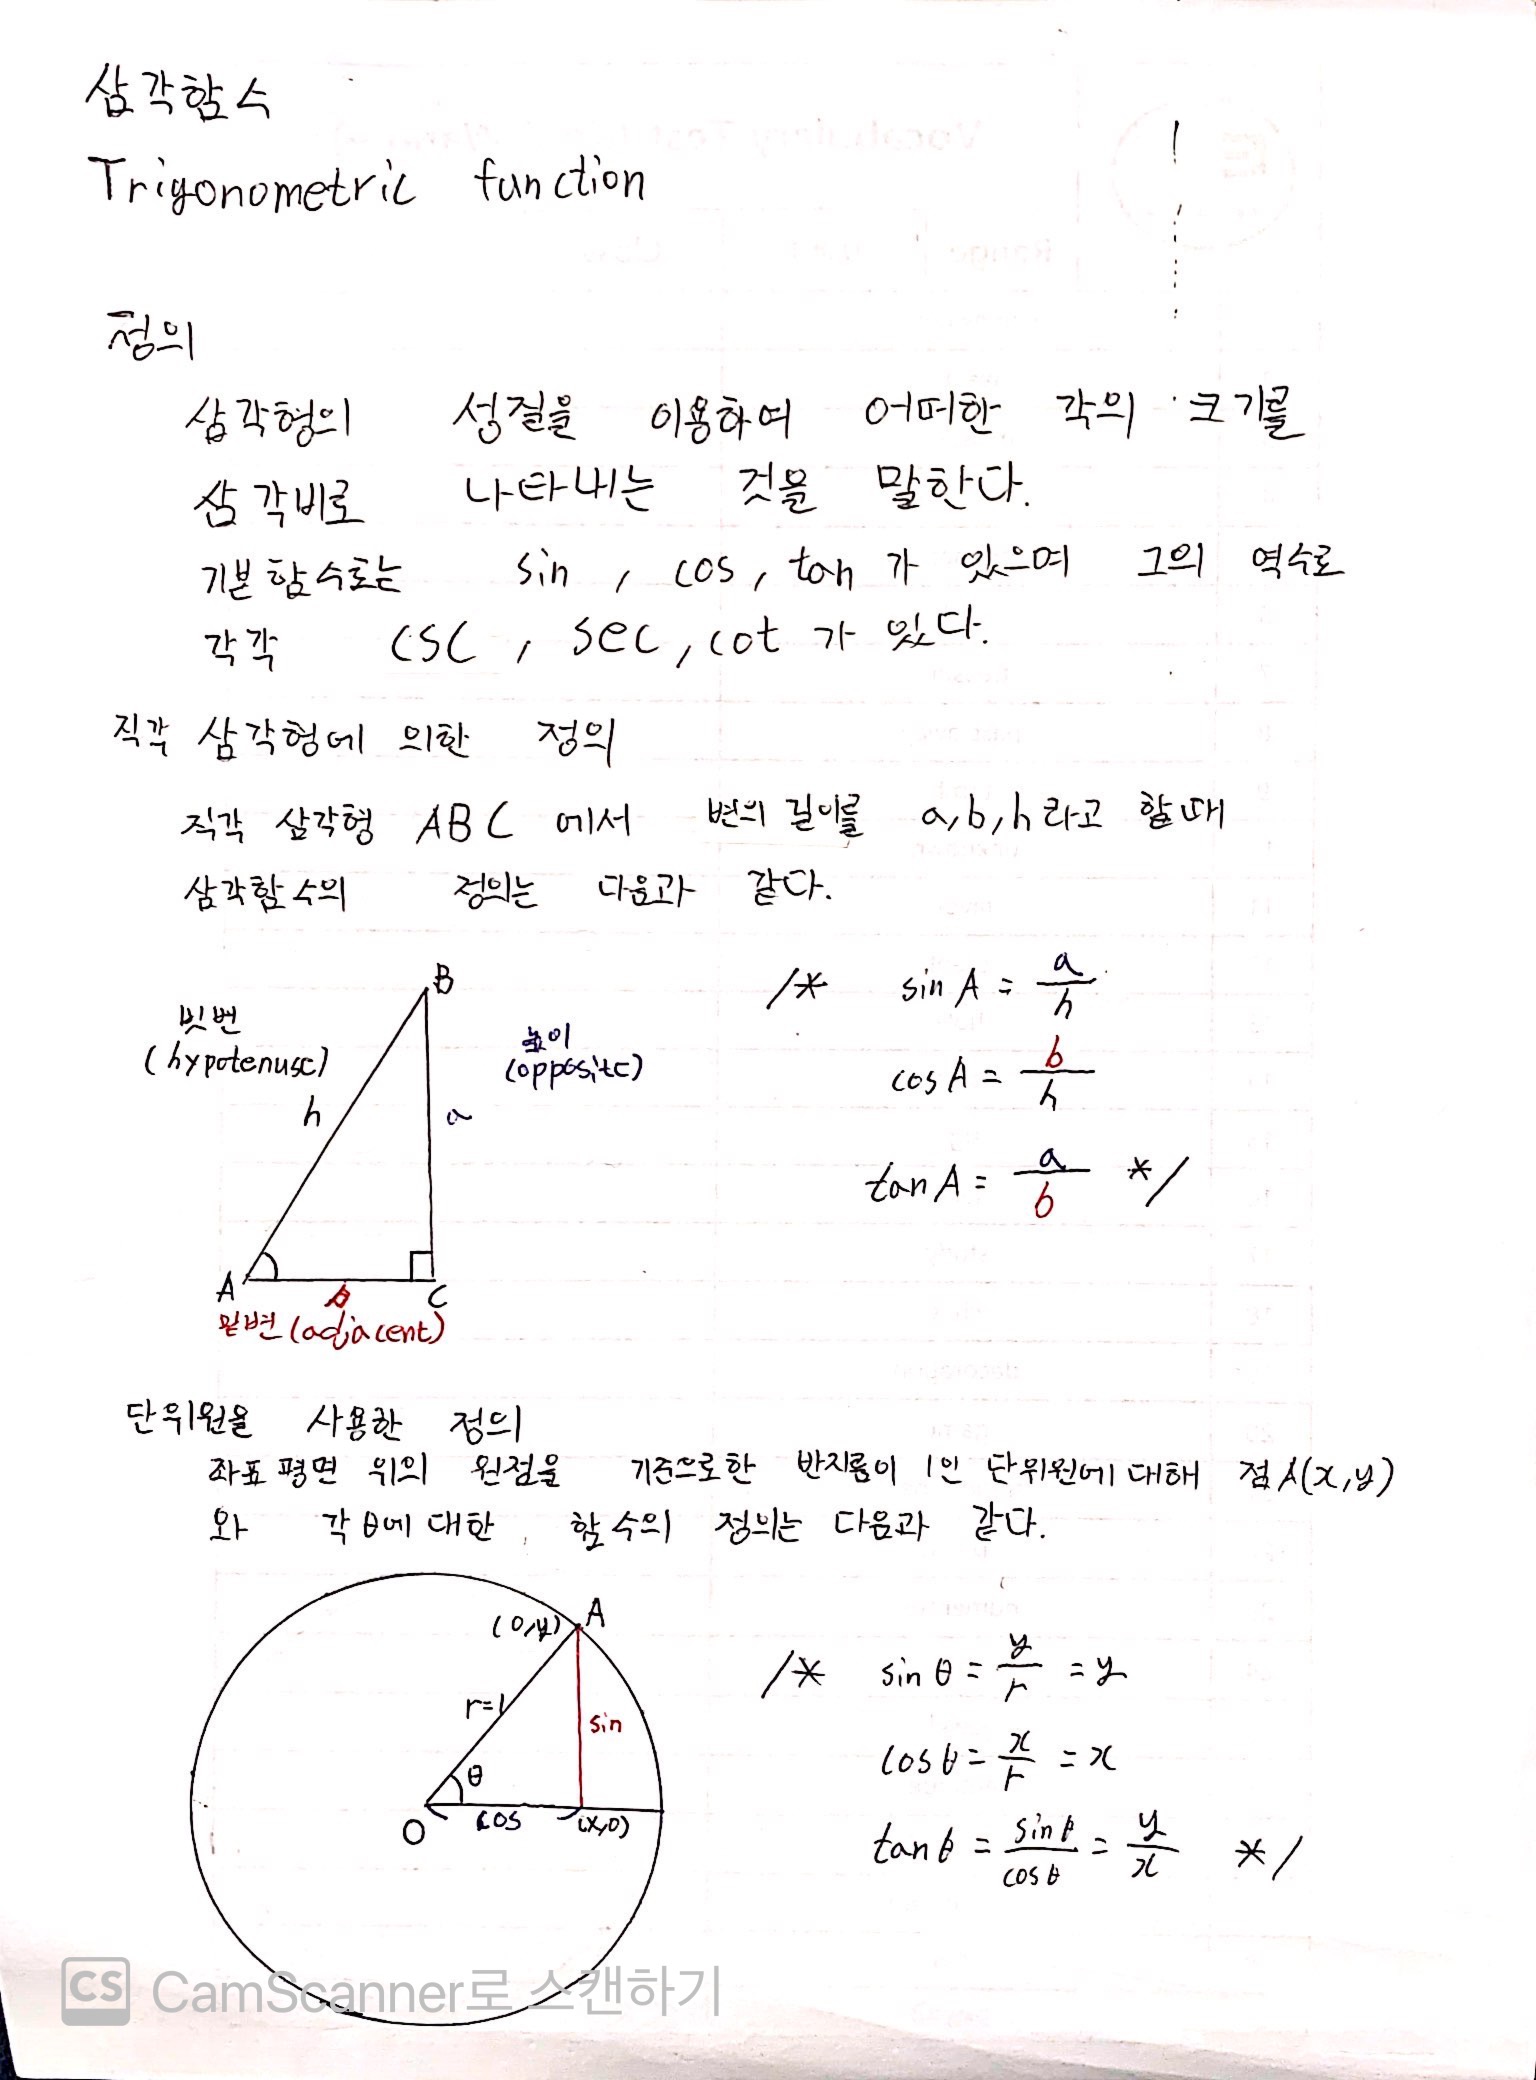 삼각함수
Trigonometric function
정의
삼각형의 성질을 이용하여 어떠한 각의 크기를
삼각비로 나타내는 것을 말한다.
기본함수로는 sin, cos, tan가 있으며 그의 역수로
각각 csc, sec, cot가 있다.
직각 삼각형에 의한 정의
직각 삼각형 ABC에서 변의 길이를 a,b,h라고 할때
삼각함수의 정의는 다음과 같다.
B
빗변
(hypotenuse)
h
높이
(opposite)
a
A
b
C
밑변(adjacent)
/* sin A = a/h
cos A = b/h
tan A = a/b */
단위원을 사용한 정의
좌표평면 위의 원점을 기준으로한 반지름이 1인 단위원에대해 점A(x,y)
와 각θ에 대한 함수의 정의는 다음과 같다.
(0,y) A
r=1
sin
θ
O
cos
(x,0)
/* sin θ = y/r = y
cos θ = x/r = x
tan θ = sin θ/cos θ = y/x */
CS CamScanner로 스캔하기